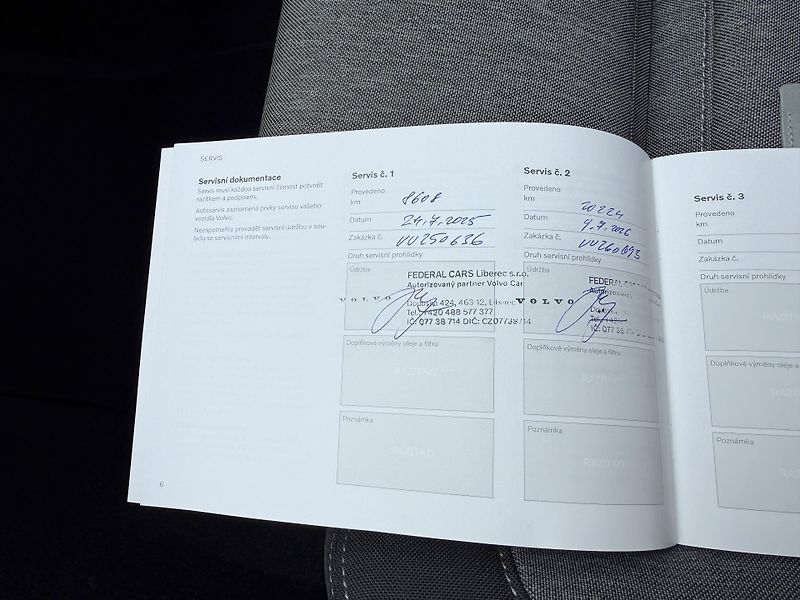 SERVIS
Servisní dokumentace
Servis musí každou servisní činnost potvrdit
razítkem a podpisem.
Autoservis zaznamená prvky servisu vašeho
vozidla Volvo.
Nezapomeňte provádět servisní údržbu v sou-
ladu se servisními intervaly.
6
Servis č. 1
Provedeno
km 8608
Datum 24.7.2025
Zakázka č. VU250636
Druh servisní prohlídky
Údržba
FEDERAL CARS Liberec s.r.o.
Autorizovaný partner Volvo Car
VOLVO
424, 463 12, Liberec
Tel.: +420 488 577 377
IČ: 077 38 714 DIČ: CZ07738714
Doplňkové výměny oleje a filtru
RAZÍTKO
Poznámka
RAZÍTKO
Servis č. 2
Provedeno
km 20224
Datum 9.7.2026
Zakázka č. VU260693
Druh servisní prohlídky
Údržba
FEDERAL
VOLVO
IČ: 077 38
Doplňkové výměny oleje a filtru
RAZÍTKO
Poznámka
RAZÍTKO
Servis č. 3
Provedeno
km
Datum
Zakázka č.
Druh servisní prohlídky
Údržba
Doplňkové výměny oleje a
Poznámka